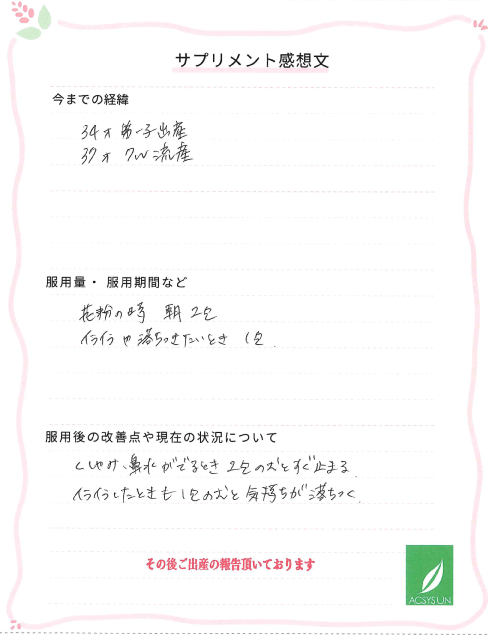 サプリメント感想文
今までの経緯
34才 第一子出産
37才 7w 流産
服用量・ 服用期間など
花粉の時 朝 2包
イライラや落ちつきたいとき 1包.
服用後の改善点や現在の状況について
くしゃみ、鼻水がでるとき 2包のむとすぐ止まる.
イライラしたときも 1包のむと 気持ちが落ちつく.
その後ご出産の報告頂いております
ACSYSUN